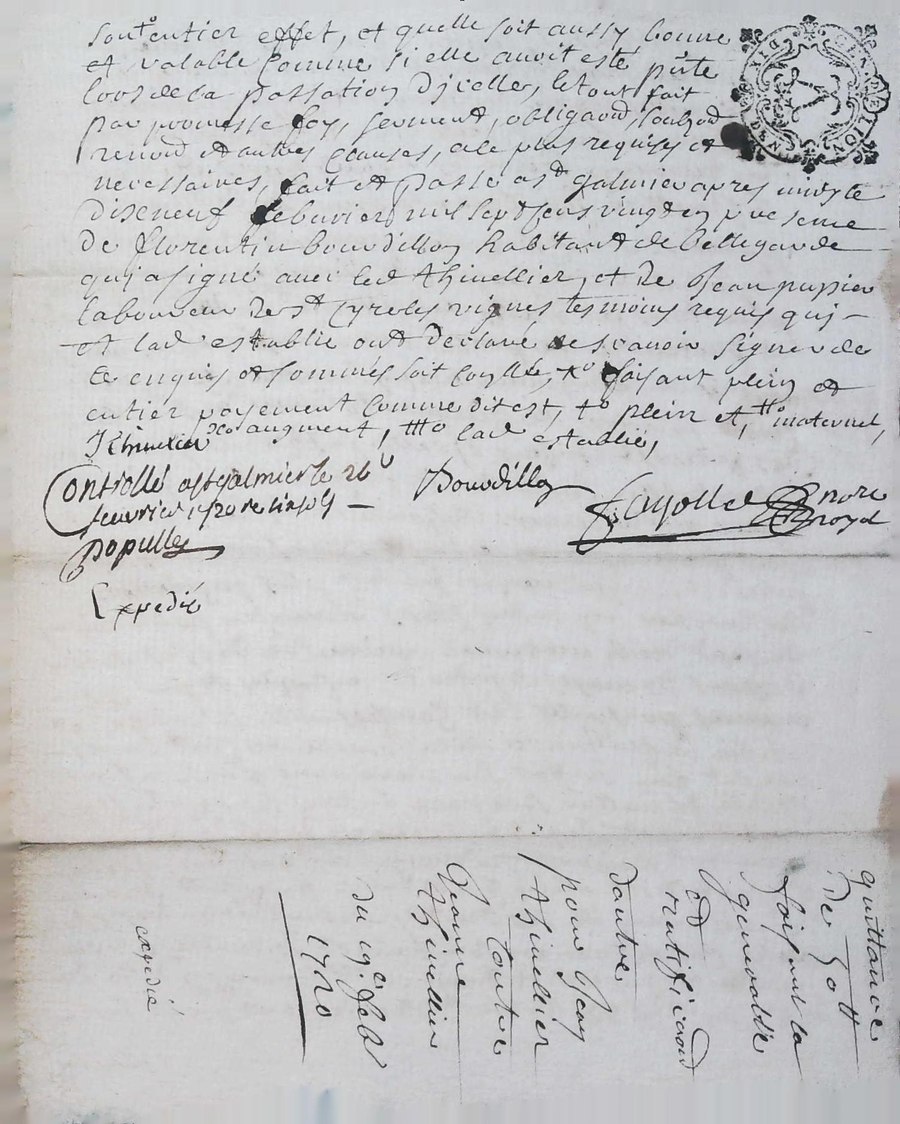 son entier effet, et quelle soit aussy bonne
et valable comme si elle avoit esté pnte
lors de la passation dicelle, le tout fait
par promesse foy, serment, obligaõn, soubzon
renonõn et autres clauses, a le plus requises et
necessaires, fait et passé a st galmier apres midy le
dixneuf febvrier mil sept cens vingt en presence
de florentin bourdillon habitant de bellegarde
qui a signé avec led thivellier, et de Jean pupier
laboureur de st cyr les vignes tesmoins requis qui
et lad establie ont declaré ne scavoir signer de
ce enquis et sommés soit controllé, to faisant plein et
entier payement comme dit est, to plein et, tto maternel,
augment, ttto lad establie,
Thivellier
Controllé a st galmier le 26e
feuvrier 1720
Bourdillon
nore
royal
Expedié
quittance
De 50 tt
faisant la
generalle
et
ratificaõn
dautre
pour Jean
thivellier
Contre
Jeanne
thivellier
du 19e feb
1720
expedié